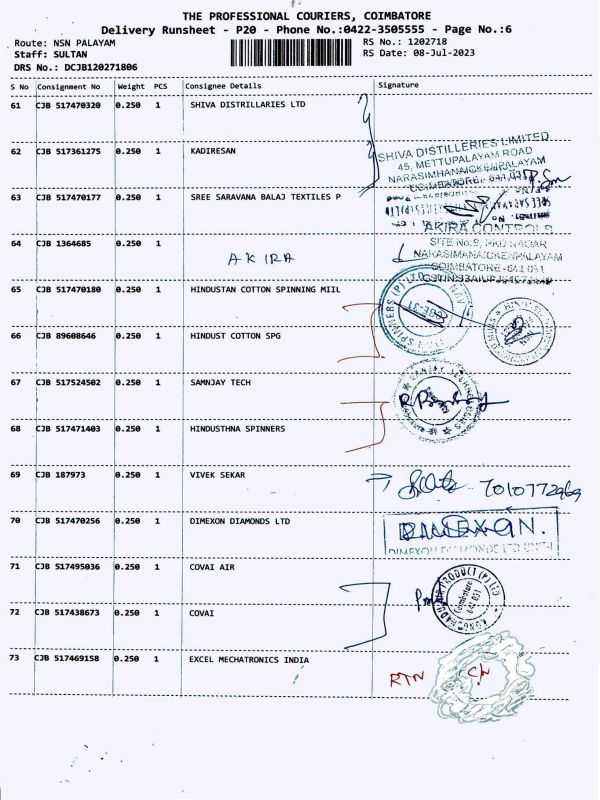 THE PROFESSIONAL COURIERS, COIMBATORE
Delivery Runsheet - P20 - Phone No.:0422-3505555 - Page No.:6
Route: NSN PALAYAM RS No.: 1202718
Staff: SULTAN RS Date: 08-Jul-2023
DRS No.: DCJB120271806
S No Consignment No Weight PCS Consignee Details Signature
61 CJB 517470320 0.250 1 SHIVA DISTRILLARIES LTD
62 CJB 517361275 0.250 1 KADIRESAN
SHIVA DISTILLERIES LIMITED
45, METTUPALAYAM ROAD
NARASIMHANAICKENPALAYAM
COIMBATORE - 641 031
63 CJB 517470177 0.250 1 SREE SARAVANA BALAJ TEXTILES P
AKIRA CONTROLS
64 CJB 1364685 0.250 1 AKIRA
SITE No:9, PKD NAGAR
NARASIMANAICKENPALAYAM
COIMBATORE - 641 031
65 CJB 517470180 0.250 1 HINDUSTAN COTTON SPINNING MIIL
66 CJB 89608646 0.250 1 HINDUST COTTON SPG
67 CJB 517524502 0.250 1 SAMNJAY TECH
68 CJB 517471403 0.250 1 HINDUSTHNA SPINNERS
69 CJB 187973 0.250 1 VIVEK SEKAR
70 CJB 517470256 0.250 1 DIMEXON DIAMONDS LTD
DIMEXON.
DIMEXON DIAMONDS LTD
71 CJB 517495036 0.250 1 COVAI AIR
72 CJB 517438673 0.250 1 COVAI
Coimbatore
641 031
73 CJB 517469158 0.250 1 EXCEL MECHATRONICS INDIA
RTN